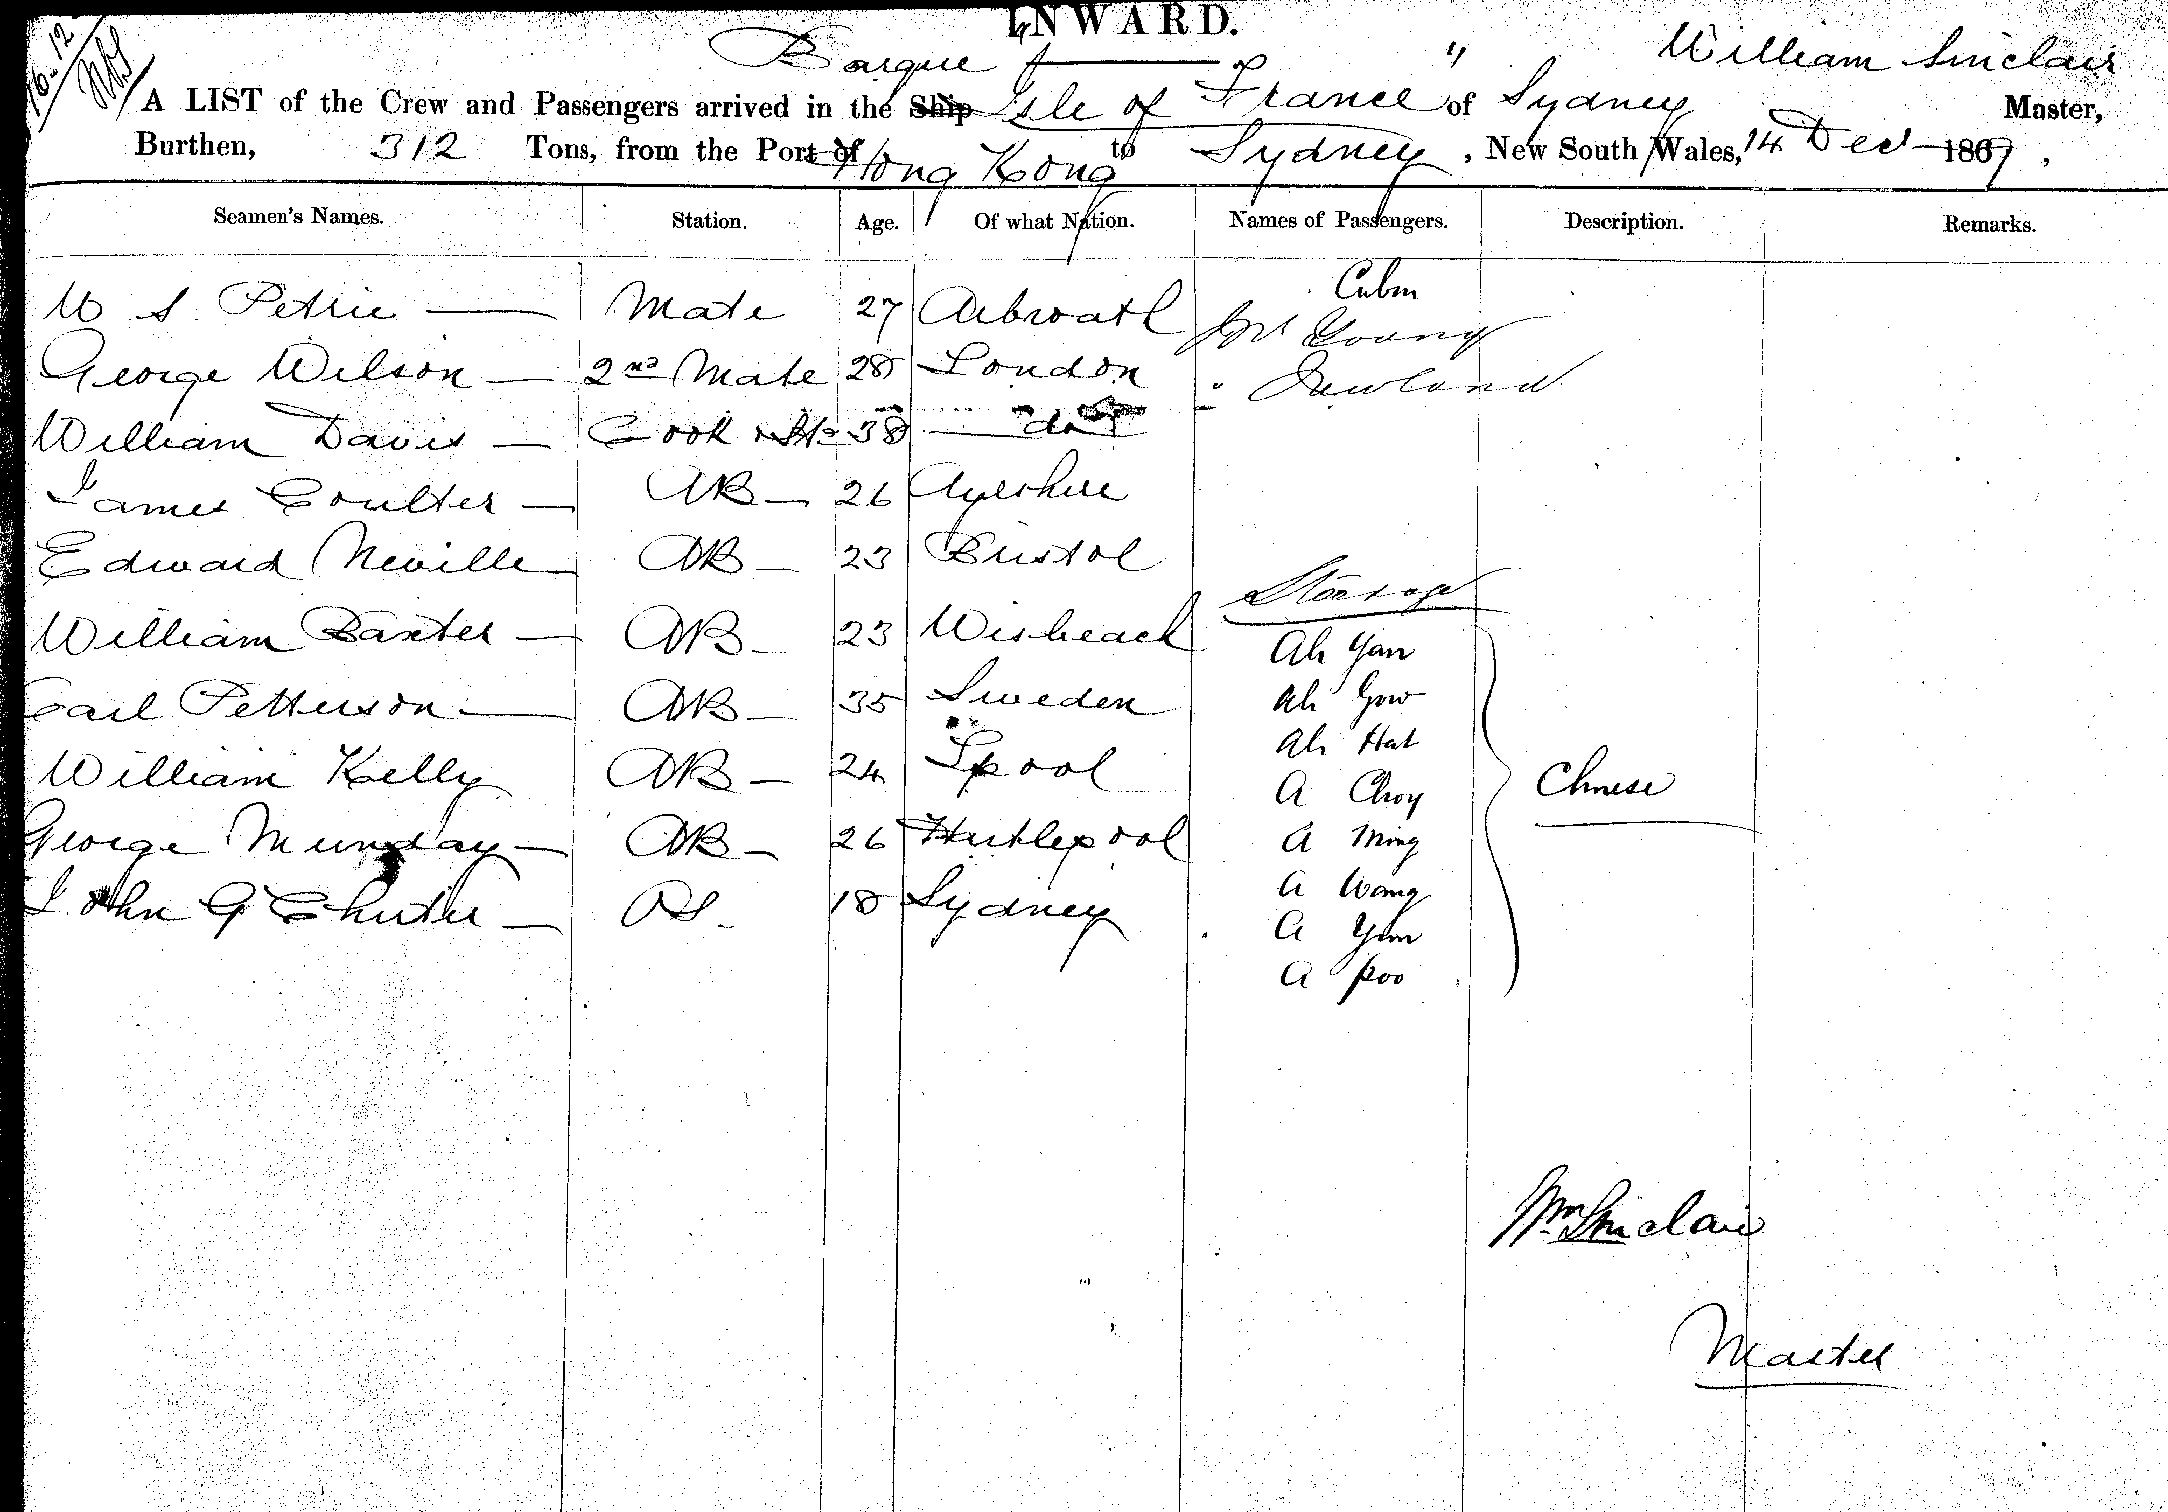 INWARD.
16-12
Barque " William Sinclair
A LIST of the Crew and Passengers arrived in the Ship Isle of France of Sydney Master,
Burthen, 312 Tons, from the Port of Hong Kong to Sydney, New South Wales, 14 Decr 1867.
Seamen's Names. Station. Age. Of what Nation. Names of Passengers. Description. Remarks.
Cabin
W S Petrie Mate 27 Arbroath Mr Young
George Wilson 2nd Mate 28 London " Newland
William Davis Cook & St 38 do
James Coulter AB 26 Ayrshire
Edward Neville AB 23 Bristol
Steerage
William Baxter AB 23 Wisbeach Ah Yan
Carl Petterson AB 35 Sweden Ah Gow
Ah Hat
William Kelly AB 24 Lpool A Choy Chinese
George Munday AB 26 Hartlepool A Ming
A Wang
John G Chuter OS 18 Sydney A Yim
A Poo
Wm Sinclair
Master